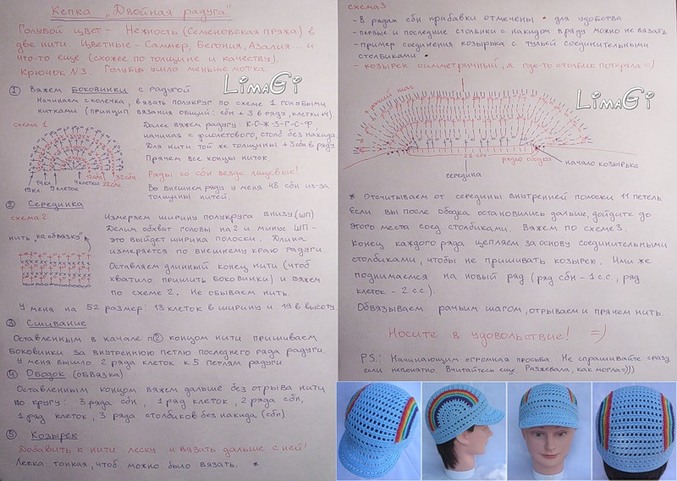 Кепка „Двойная радуга"
Голубой цвет - Нежность (Семеновская пряжа) в
две нити Цветные - Саммер, Бегония, Азалия ... и
что-то еще (схожее по толщине и качеству).
Крючок №3. Голубых ушло меньше мотка.
LimaGi
① Вяжем Боковинки с радугой
Начинаем с колечка, вязать полукруг по схеме 1 голубыми
нитками (принцип вязания общий: сбн + 3 в ряд, клетки)
схема 1
Далее вяжем радугу К-О-Ж-З-Г-С-Ф
начиная с фиолетового, столб без накида.
Для нити той же толщины +3сбн в ряд
Прячем все концы ниток.
Ряды со сбн везде лицевые!
Во внешнем ряду у меня 48 сбн из-за
толщины нитей.
② Серединка
схема 2
нить „на обвязку"
Измеряем ширину полукруга внизу (шп)
Делим обхват головы на 2 и минус шп -
это выйдет ширина полоски. Длина
измеряется по внешнему краю радуги
Оставляем длинный конец нити (чтоб
хватило пришить боковинки) и вяжем
по схеме 2. Не обрываем нить.
У меня на 52 размер: 13 клеток в ширину и 19 в высоту.
③ Сшивание
Оставленным в начале п② концом нити пришиваем
боковинки за внутреннюю петлю последнего ряда радуги
У меня вышло: 2 ряда клеток к 5 петлям радуги
④ Ободок (обвязка)
Оставленным концом вяжем дальше без отрыва нити
по кругу: 3 ряда сбн, 1 ряд клеток, 2 ряда сбн,
1 ряд клеток, 3 ряда столбиков без накида (сбн)
⑤ Козырек
Добавить к нити леску и вязать дальше с ней!
Леска тонкая, чтоб можно было вязать. *
схема 3
- В рядах сбн прибавки отмечены • для удобства
- первые и последние столбики с накидом в ряду можно не вязать
- пример соединения козырька с тульей соединительными
столбиками
- козырек симметричный, а где-то столбик потеряла =)
LimaGi
рачий шаг
ряды ободка
середина
начало козырька
* Отсчитываем от середины внутренней поймы 11 петель
Если вы после ободка остановились дальше, дойдите до
этого места соед. столбиками. Вяжем по схеме 3.
Конец каждого ряда цепляем за основу соединительными
столбиками, чтобы не пришивать козырек. Ими же
поднимаемся на новый ряд (ряд сбн - 1 с.с., ряд
клеток - 2 с.с).
Обвязываем рачьим шагом, отрываем и прячем нить.
Носите в удовольствие! =)
P.S.: Начинающим огромная просьба. Не спрашивайте сразу,
если непонятно. Вчитайтесь еще. Разжевала, как могла=)))